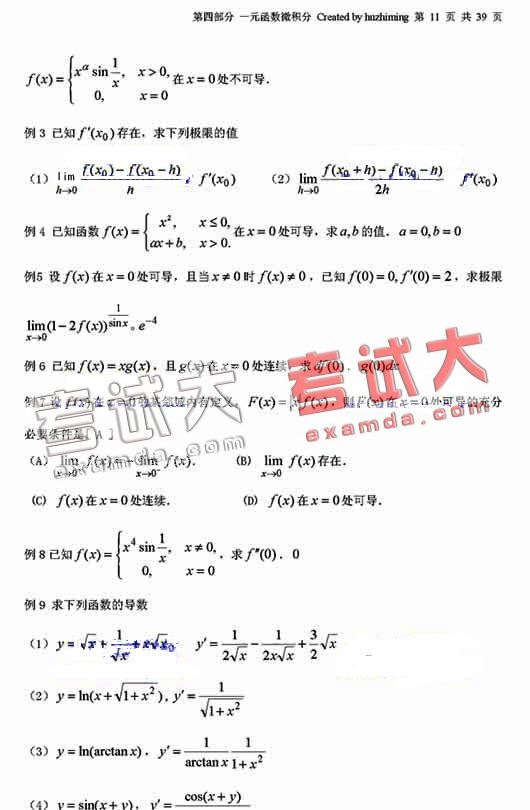 第四部分 一元函数微积分 Created by huzhiming 第 11 页 共 39 页
f(x)={x^α sin 1/x, x>0, 0, x=0 在 x=0 处不可导.
例 3 已知 f′(x₀) 存在, 求下列极限的值
(1) lim h→0 (f(x₀)−f(x₀−h))/h, f′(x₀) (2) lim h→0 (f(x₀+h)−f(x₀−h))/2h f′(x₀)
例 4 已知函数 f(x)={x², x≤0, ax+b, x>0. 在 x=0 处可导, 求 a,b 的值. a=0,b=0
例5 设 f(x) 在 x=0 处可导, 且当 x≠0 时 f(x)≠0, 已知 f(0)=0, f′(0)=2, 求极限
lim x→0 (1−2f(x))^(1/sin x)。e^−4
例 6 已知 f(x)=xg(x), 且 g(x) 在 x=0 处连续, 求 df(0). g(0)dx
例 7 设 f(x) 在 x=0 的某邻域内有定义, F(x)= f(x), 则 F(x) 在 x=0 处可导的充分
必要条件是[ A ]
(A) lim x→0⁺ f(x)=−lim x→0⁻ f(x). (B) lim x→0 f(x) 存在.
(C) f(x) 在 x=0 处连续. (D) f(x) 在 x=0 处可导.
例 8 已知 f(x)={x⁴ sin 1/x, x≠0, 0, x=0, 求 f″(0). 0
例 9 求下列函数的导数
(1) y=√x+1/√x+x√x y′=1/(2√x)−1/(2x√x)+3/2 √x
(2) y=ln(x+√(1+x²)), y′=1/√(1+x²)
(3) y=ln(arctan x). y′=1/arctan x 1/(1+x²)
(4) y=sin(x+y), y′= cos(x+y)
考试大
examda.com
考试大
examda.com